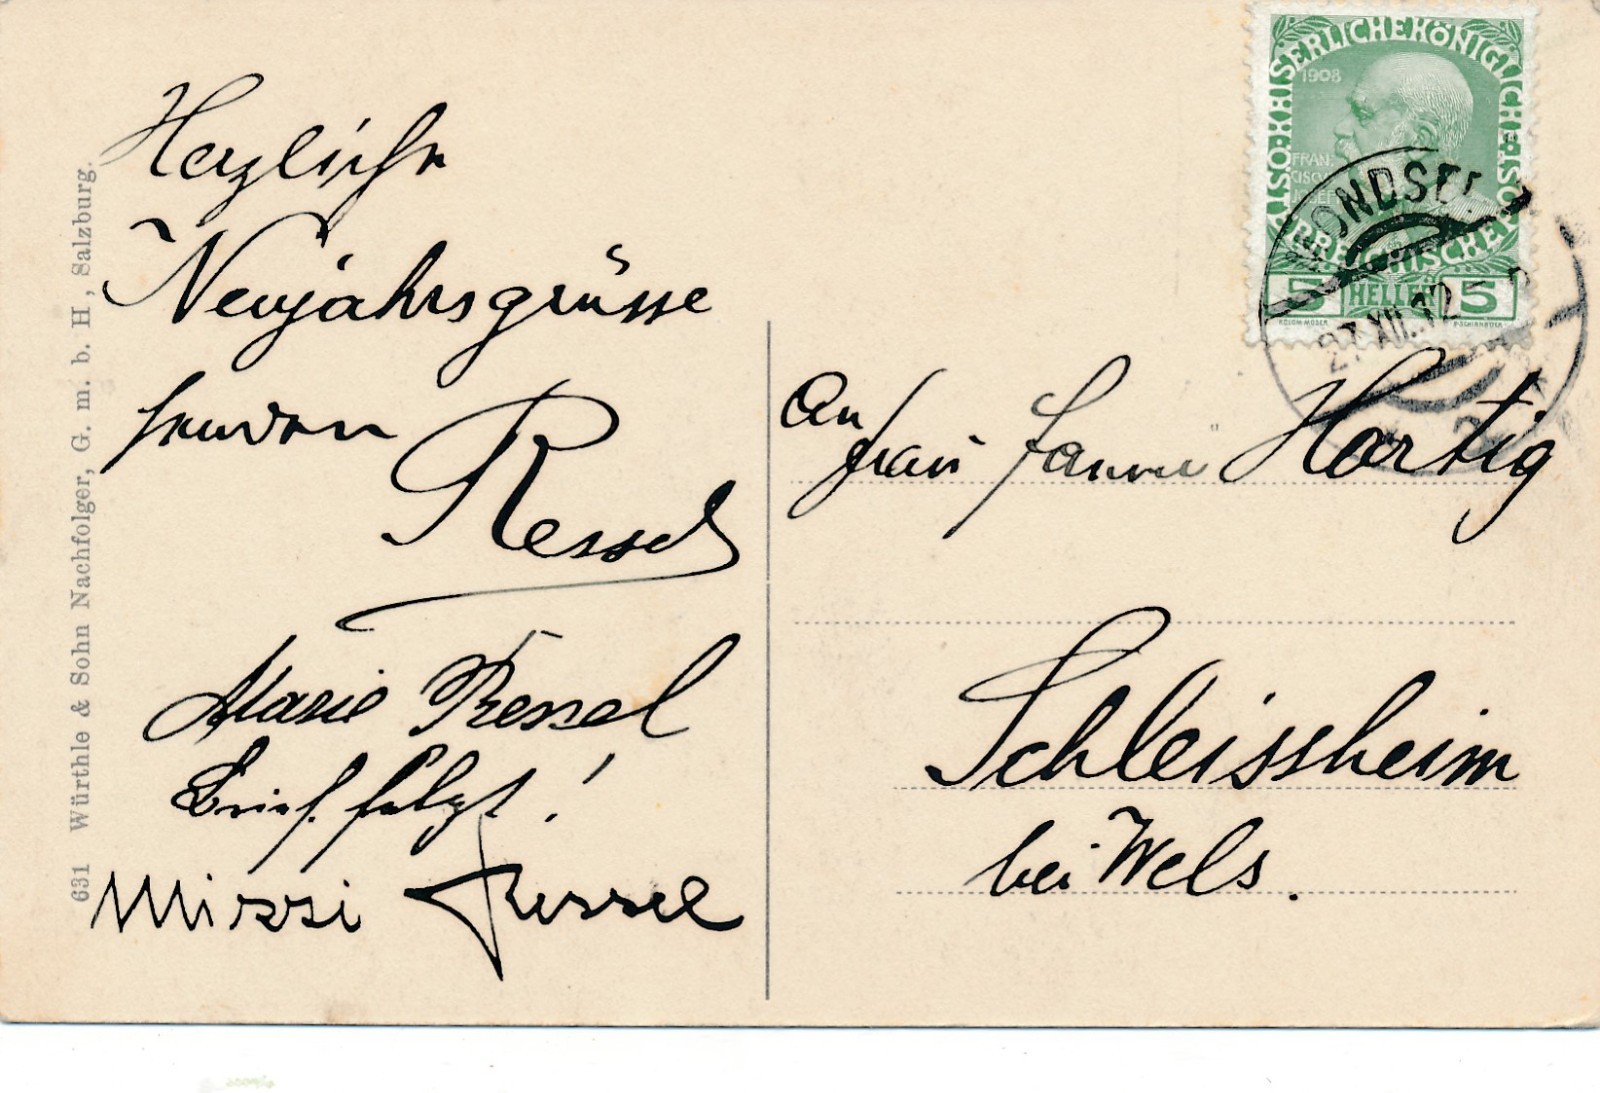 Herzliche
Neujahrsgrüsse
senden
Ressel
Marie Ressel
Brief folgt!
Mizzi Ressel
631 Würthle & Sohn Nachfolger, G. m. b. H, Salzburg.
KAISERLICHE KÖNIGLICHE
ÖSTERREICHISCHE
1908
FRAN
CISCVS
JOSEF
5 HELLER 5
MONDSEE
27.XII.12
An
Frau Fanni Hartig
Schleissheim
bei Wels.